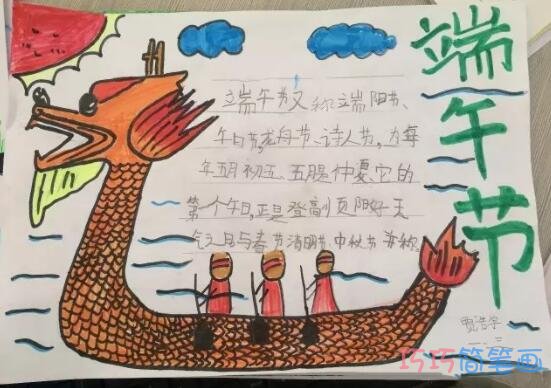 端午节
端午节又称端阳节、
午日节,龙舟节、诗人节,为每
年五月初五、五腊仲夏它的
第一个午日,正是登高顺阳好天
气之日与春节清明节中秋节并称
贾浩宇
巧巧简笔画